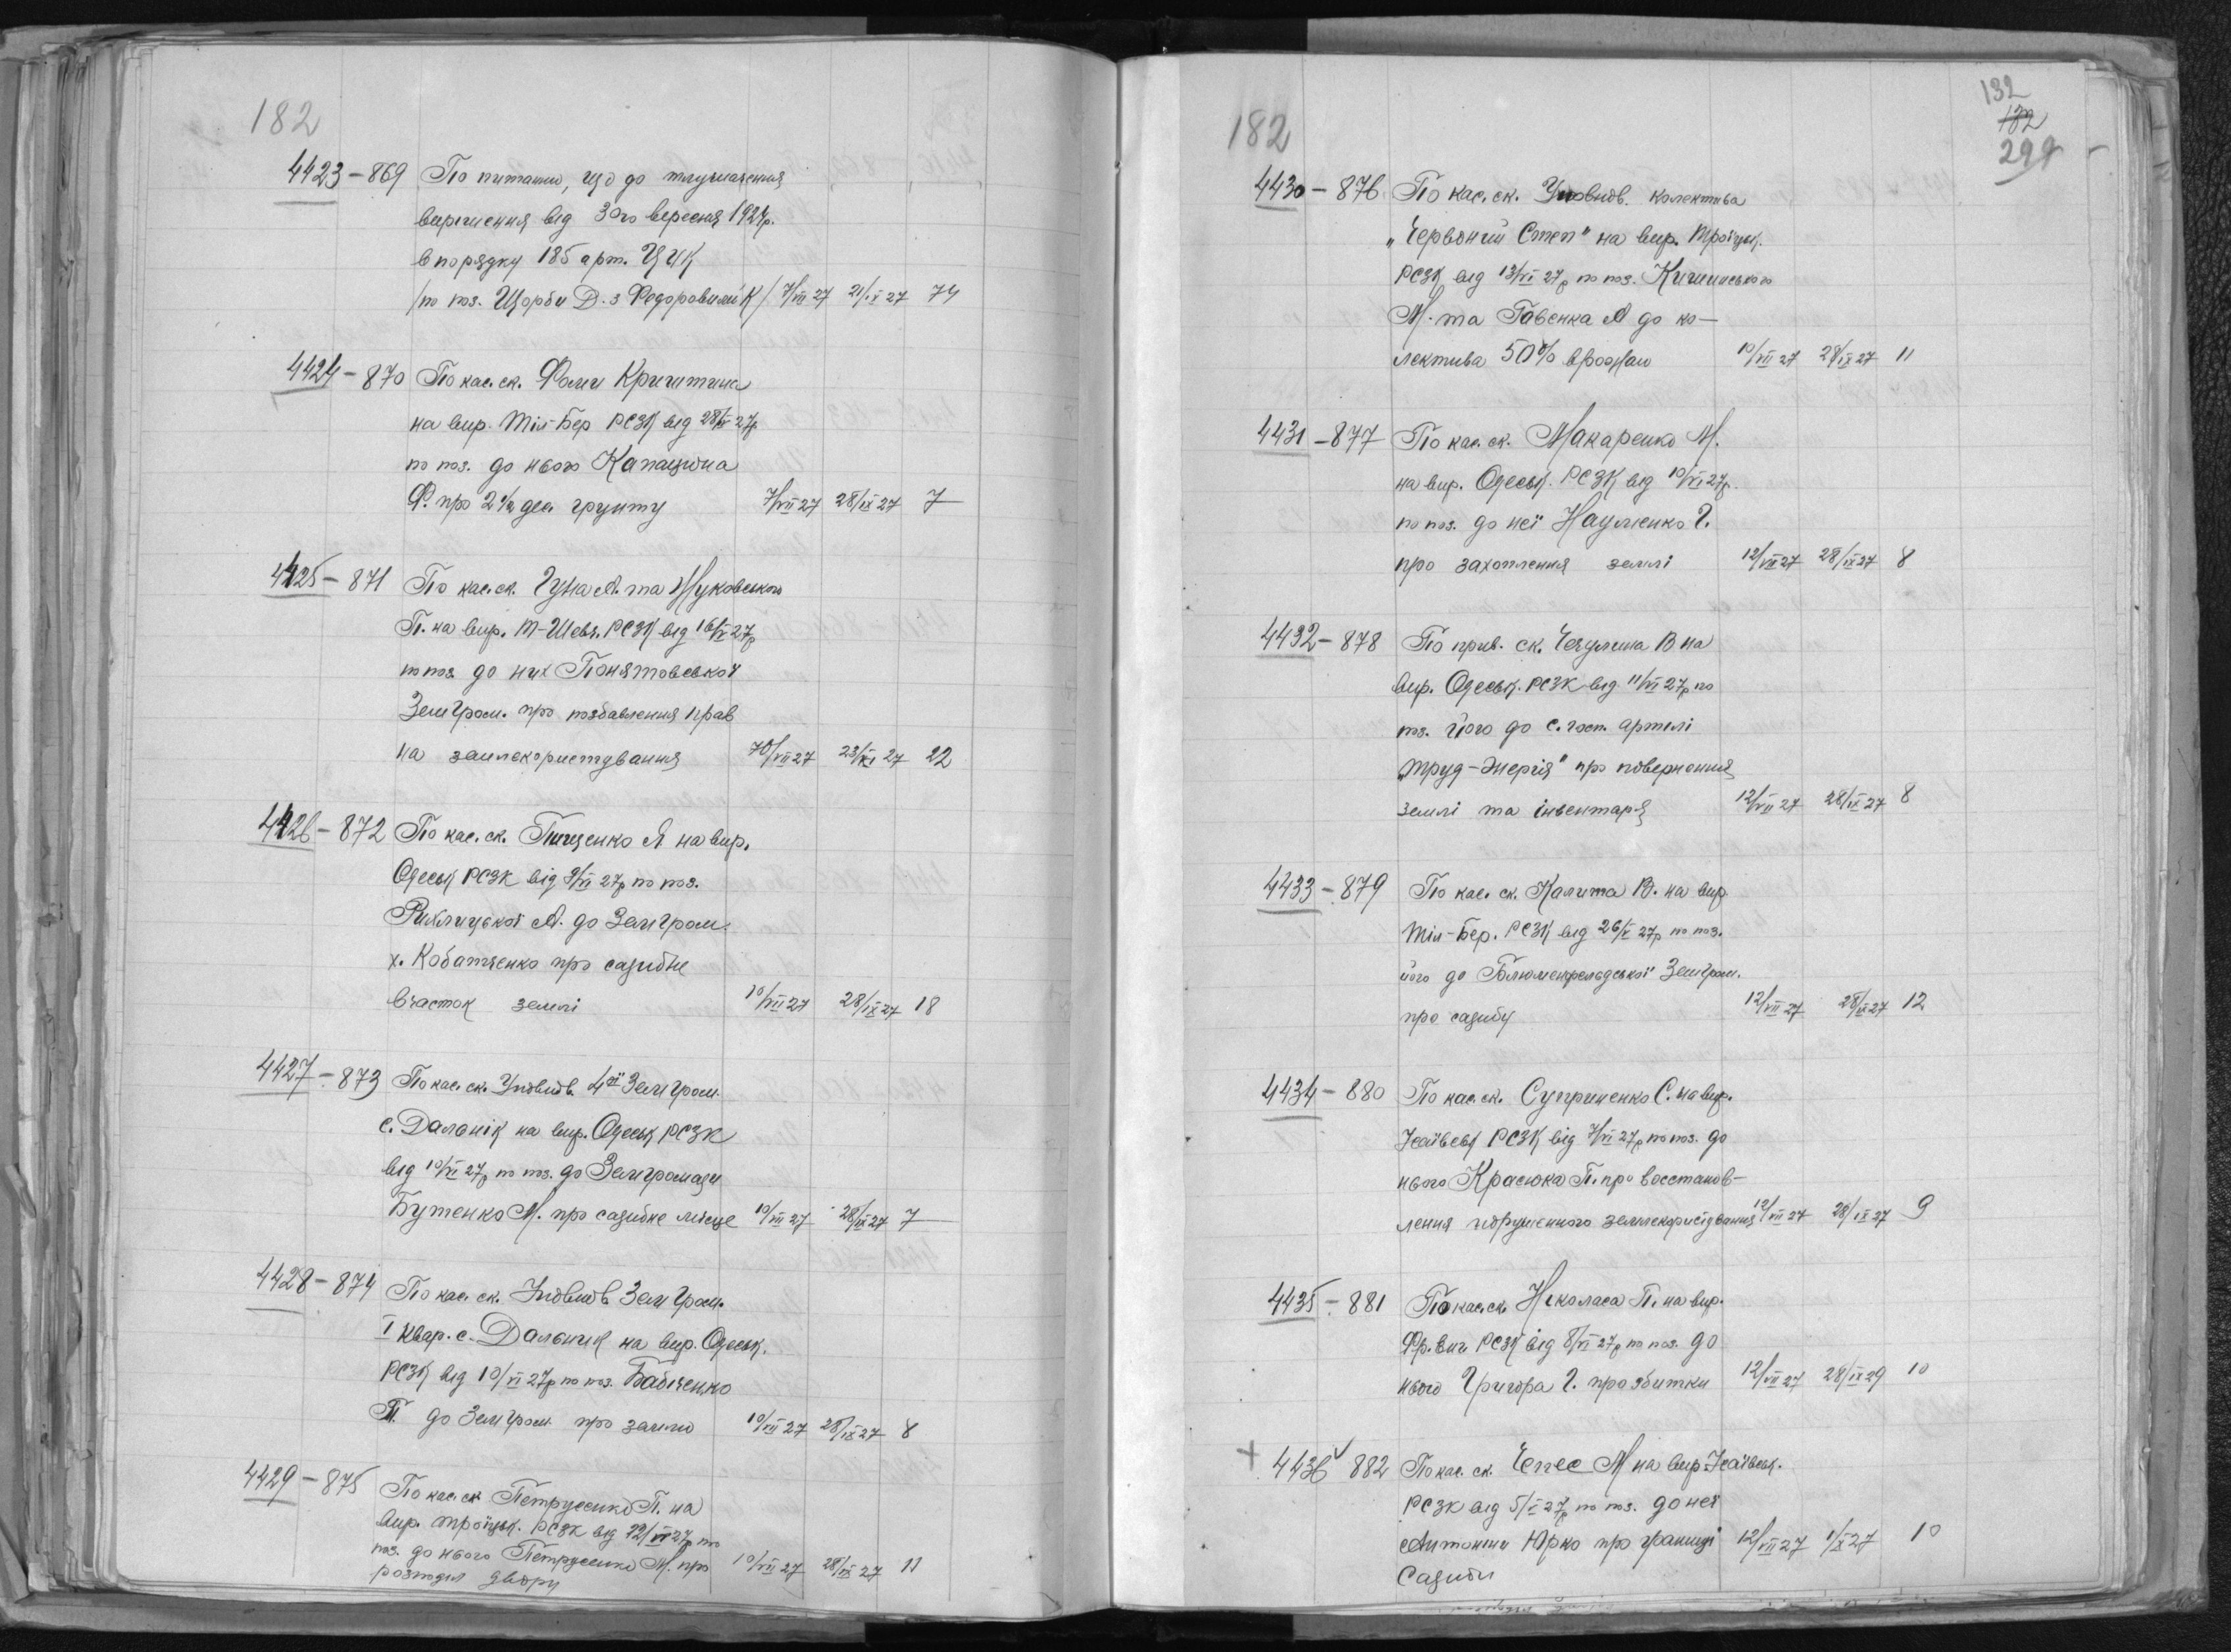 182
4423-869 По питанню, що до тлумачення
вирішення від 30го вересня 1924р.
в порядку 185 арт. ЦУК
/по поз. Щорби Д. з Федоровимк/ 7/VII 27 21/IX 27 74
4424-870 По кас. ск. Фоми Криштина
на вир. Тіл-Бер РСЗК від 27р
по поз. до нього Капацина
Ф. про 2½ дес. грунту 7/VII 27 28/IX 27 7
4425-871 По кас. ск. Гуна А. та Жуковського
П. на вир. Т-Шевч. РСЗК від 16/V 27р
по поз до них Понятовської
Земгром. про позбавлення прав
на землекористування /VII 27 23/XI 27 22
4426-872 По кас. ск. Гищенко Я на вир.
Одеськ РСЗК від 9/VI 27р по поз.
Рихлицької А. до Земгром.
х. Кобатченко про садибне
вчасток землі 10/VII 27 28/IX 27 18
4427-873 По кас. ск. Уповнов. 4ої Земгром.
с. Дальнік на вир. Одеськ РСЗК
від 10/VI 27р по поз. доЗемгромади
Бутенко М. про садибне місце 10/VII 27 28/IX 27 7
4428-874 По кас. ск. Уповнов Земгром.
I квар. с. Дальник на вир. Одеськ.
РСЗК від 10/VI 27р по поз. Бабіченко
П. до Земгром. про землю 10/VII 27 28/IX 27 8
4429-875 По кас. ск Петрусенко П. на
вир. Троїцьк. РСЗК від 27р по
поз. до нього Петрусенко М. про 10/VII 27 28/IX 27 11
розподіл двору
182
132
182
299
4430-876 По кас. ск. Уповнов. колектива
„Червоний Степ" на вир. Троїцьк.
РСЗК від 13/VI 27р по поз. Кишинського
М. та Гавенка А до ко-
лектива 50% врожаю 10/VII 27 28/IX 27 11
4431-877 По кас. ск. Макаренко М.
на вир. Одеськ. РСЗК від 10/VI 27р.
по поз. до неї Науменко Г.
про захоплення землі 12/VII 27 28/IX 27 8
4432-878 По прив. ск. В на
вир. Одеськ. РСЗК від 11/VI 27р по
поз. його до с. госп. артілі
„Труд-Энергія" про повернення
землі та інвентаря 12/VII 27 28/IX 27 8
4433-879 По кас. ск. Калита В. на вир
Тіл-Бер. РСЗК від 26/V 27р по поз.
його до Блюменфельдської Земгром.
про садибу 12/VII 27 28/IX 27 12
4434-880 По кас. ск. Супрыненко С. на вир.
Ісаївськ РСЗК від 7/VI 27р по поз. до
нього Красюка П. про восстанов-
лення порушенного землекористування 12/VII 27 28/IX 27 9
4435-881 По кас. ск. Ніколаса П. на вир.
Фр. Енг РСЗК від 8/VI 27р по поз. до
нього Григора Г. про збитки 12/VII 27 28/IX 29 10
+ 4436 882 По кас. ск. Чепес М на вир. Ісаївськ.
РСЗК від 5/V 27р по поз. до неї
Антонии Юрко про границі 12/VII 27 1/X 27 10
Садиби